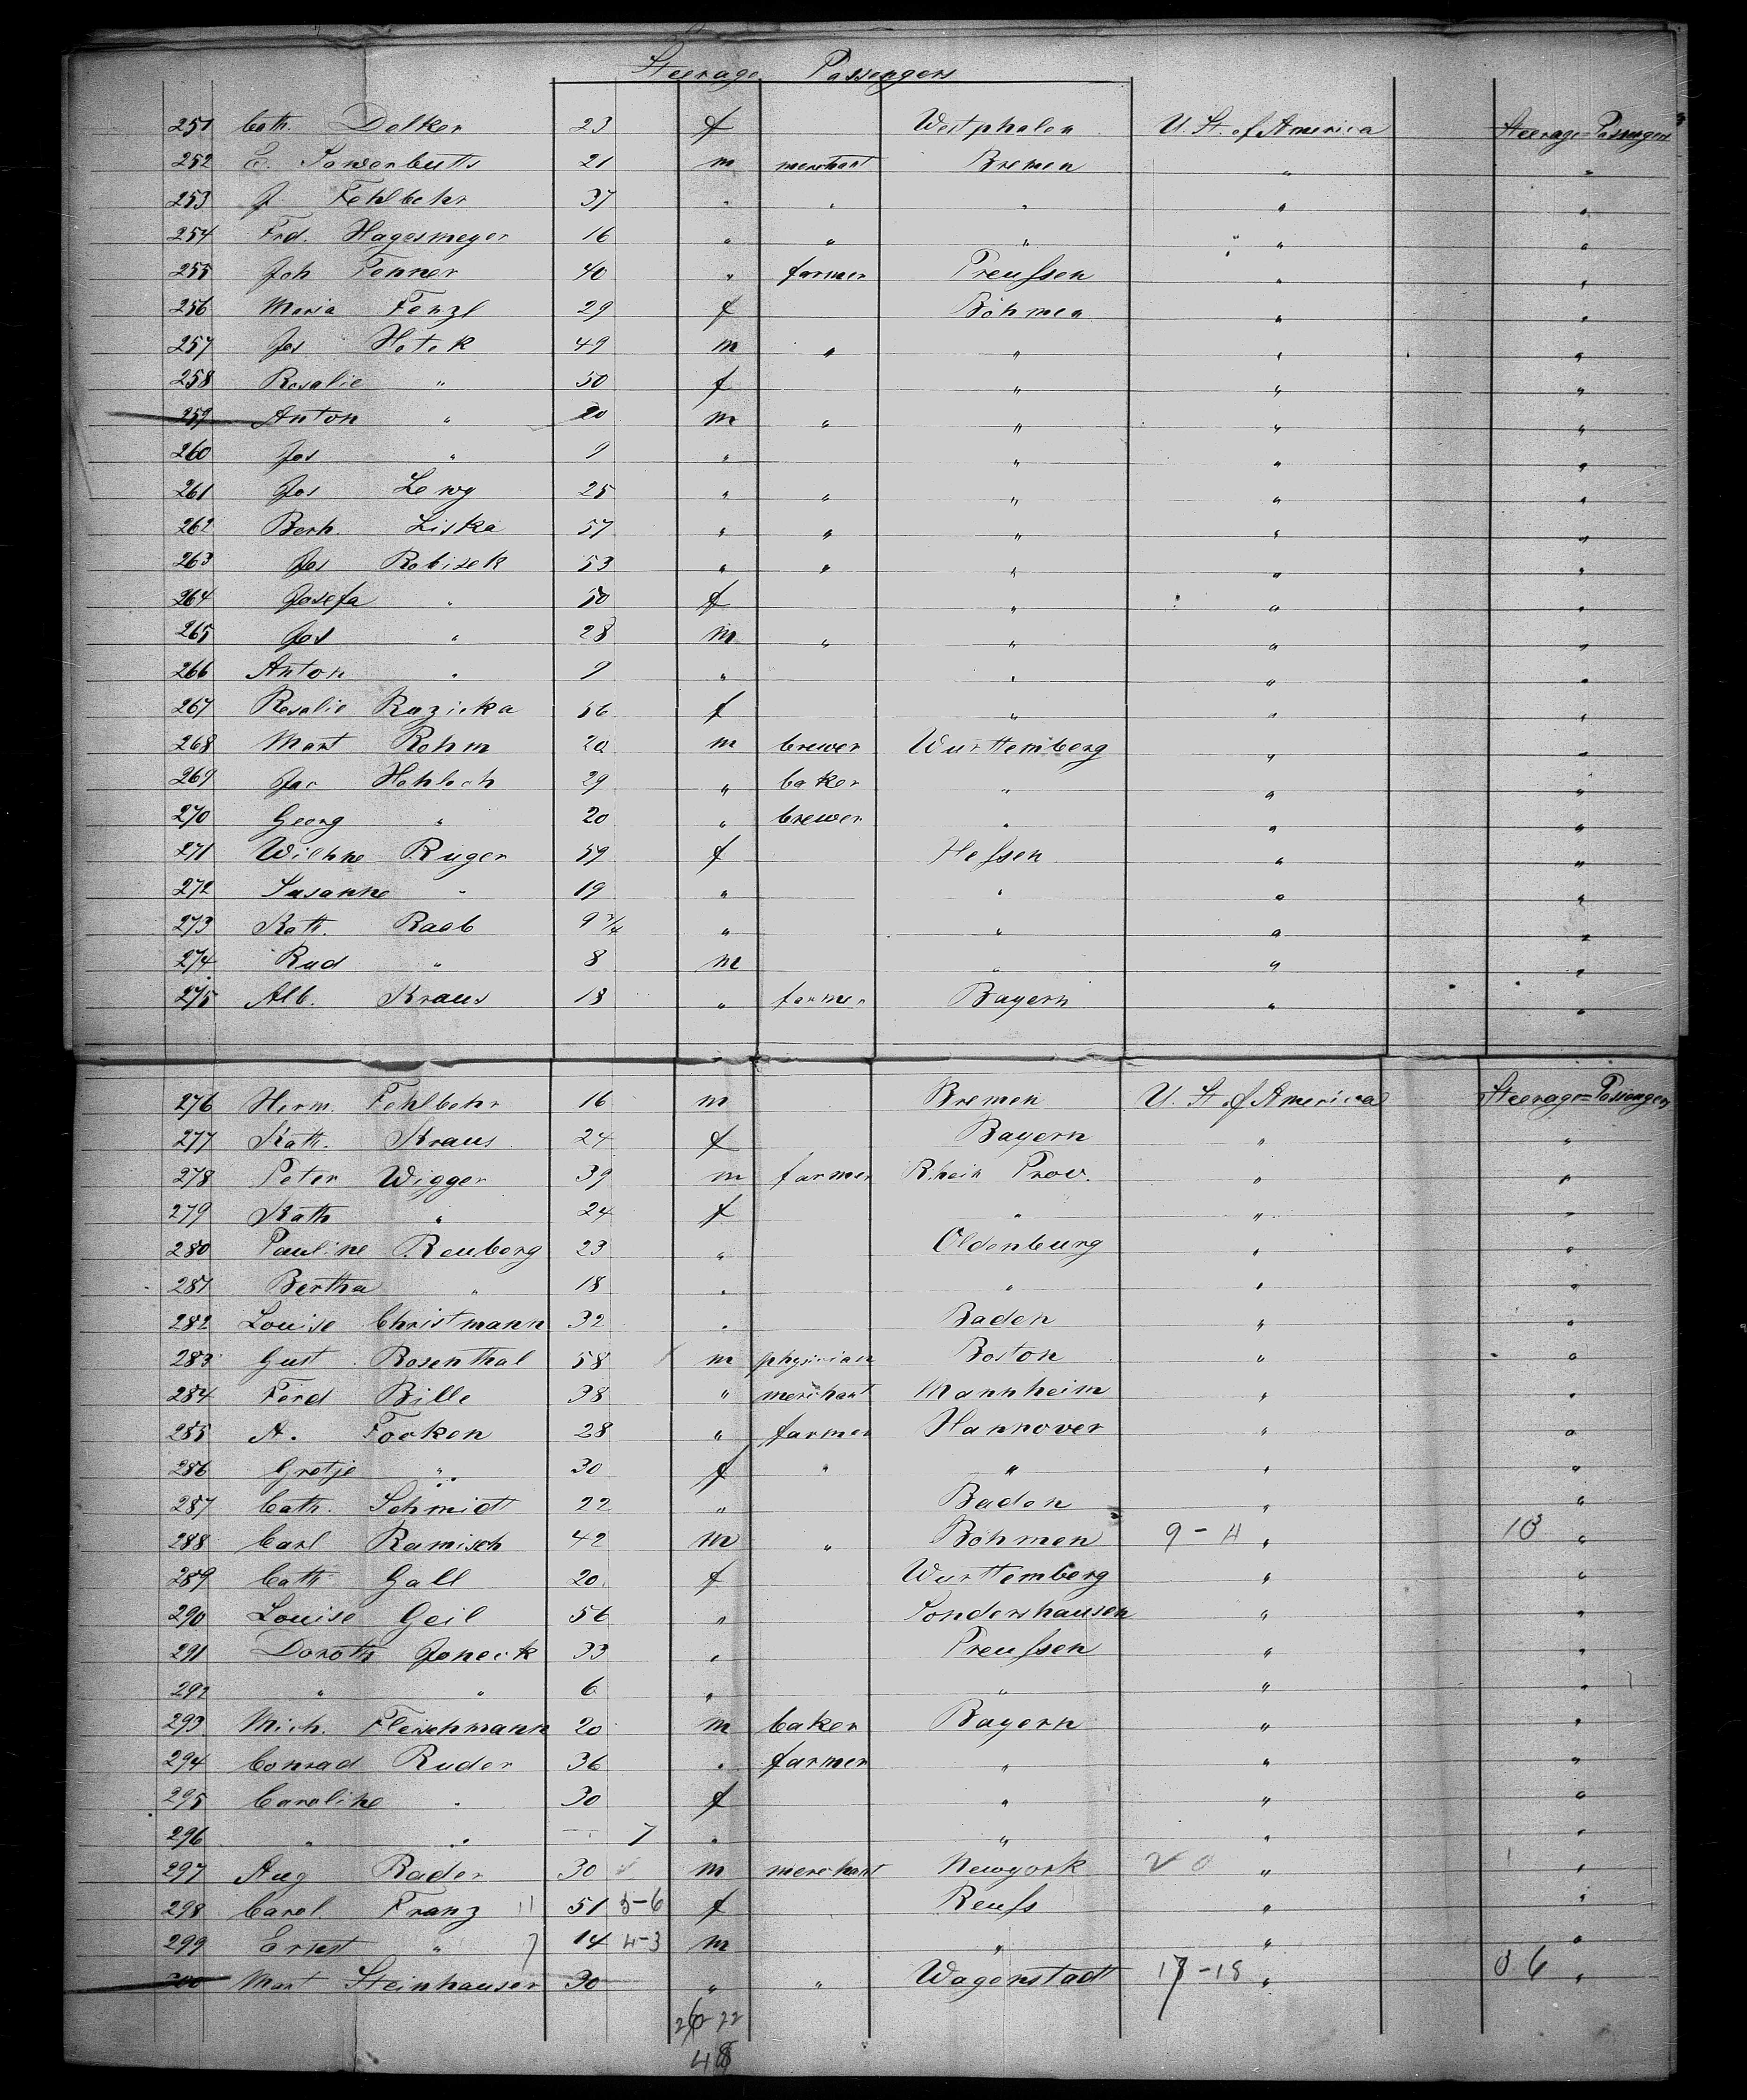 Steerage Passengers
251 Cath. Delker 23 f Westphalen U. St. of America Steerage=Passengers
252 E. Sowerbutts 21 m merchant Bremen " "
253 J. Fehlbehr 37 " " " " "
254 Frd. Hagesmeyer 16 " " " " "
255 Joh Fenner 40 " farmer Preußen " "
256 Maria Fenzl 29 f Böhmen " "
257 Jos Hotek 49 m " " " "
258 Rosalie " 50 f " " "
259 Anton " 20 m " " " "
260 Jos " 9 " " " "
261 Jos Lewy 25 " " " " "
262 Berh. Liska 57 " " " " "
263 Jos Robisek 53 " " " " "
264 Josefa " 50 f " " "
265 Jos " 28 m " " " "
266 Anton " 9 " " " "
267 Rosalie Ruzicka 56 f " " "
268 Mart Rehm 20 m brewer Wurttemberg " "
269 Jac Hohloch 29 " baker " " "
270 Georg " 20 " brewer " " "
271 Wilhne Ruger 59 f Heßen " "
272 Susanne " 19 " " " "
273 Kath. Raab 9 3/4 " " " "
274 Rud " 8 m " " "
275 Alb. Kraus 18 " farmer Bayern " "
276 Herm. Fehlbehr 16 m Bremen U. St. of America Steerage=Passengers
277 Kath. Kraus 24 f Bayern " "
278 Peter Wigger 39 m farmer Rhein Prov. " "
279 Kath " 24 f " " "
280 Pauline Reuberg 23 " Oldenburg " "
281 Bertha " 18 " " " "
282 Louise Christmann 32 " Baden " "
283 Gust Rosenthal 58 m physician Boston " "
284 Ferd Bille 38 " merchant Mannheim " "
285 A. Focken 28 " farmer Hannover " "
286 Gretje " 30 f " " " "
287 Cath. Schmidt 22 " Baden " "
288 Carl Ramisch 42 m " Böhmen 9-4 " 13 "
289 Cath Gall 20 f Wurttemberg " "
290 Louise Geil 56 " Sondershausen " "
291 Doroth Joneck 33 " Preußen " "
292 " " 6 " " " "
293 Mich. Fleischmann 20 m baker Bayern " "
294 Conrad Ruder 36 " farmer " " "
295 Caroline " 30 f " " "
296 " " — 7 " " " "
297 Aug Rader 30 m merchant Newyork 20 " "
298 Carol. Franz 11 51 5-6 f Reuß " "
299 Ernst " 7 14 4-3 m " " "
300 Mart Steinhauser 30 " " Wagenstadt 17-18 " 36 "
26-22
48